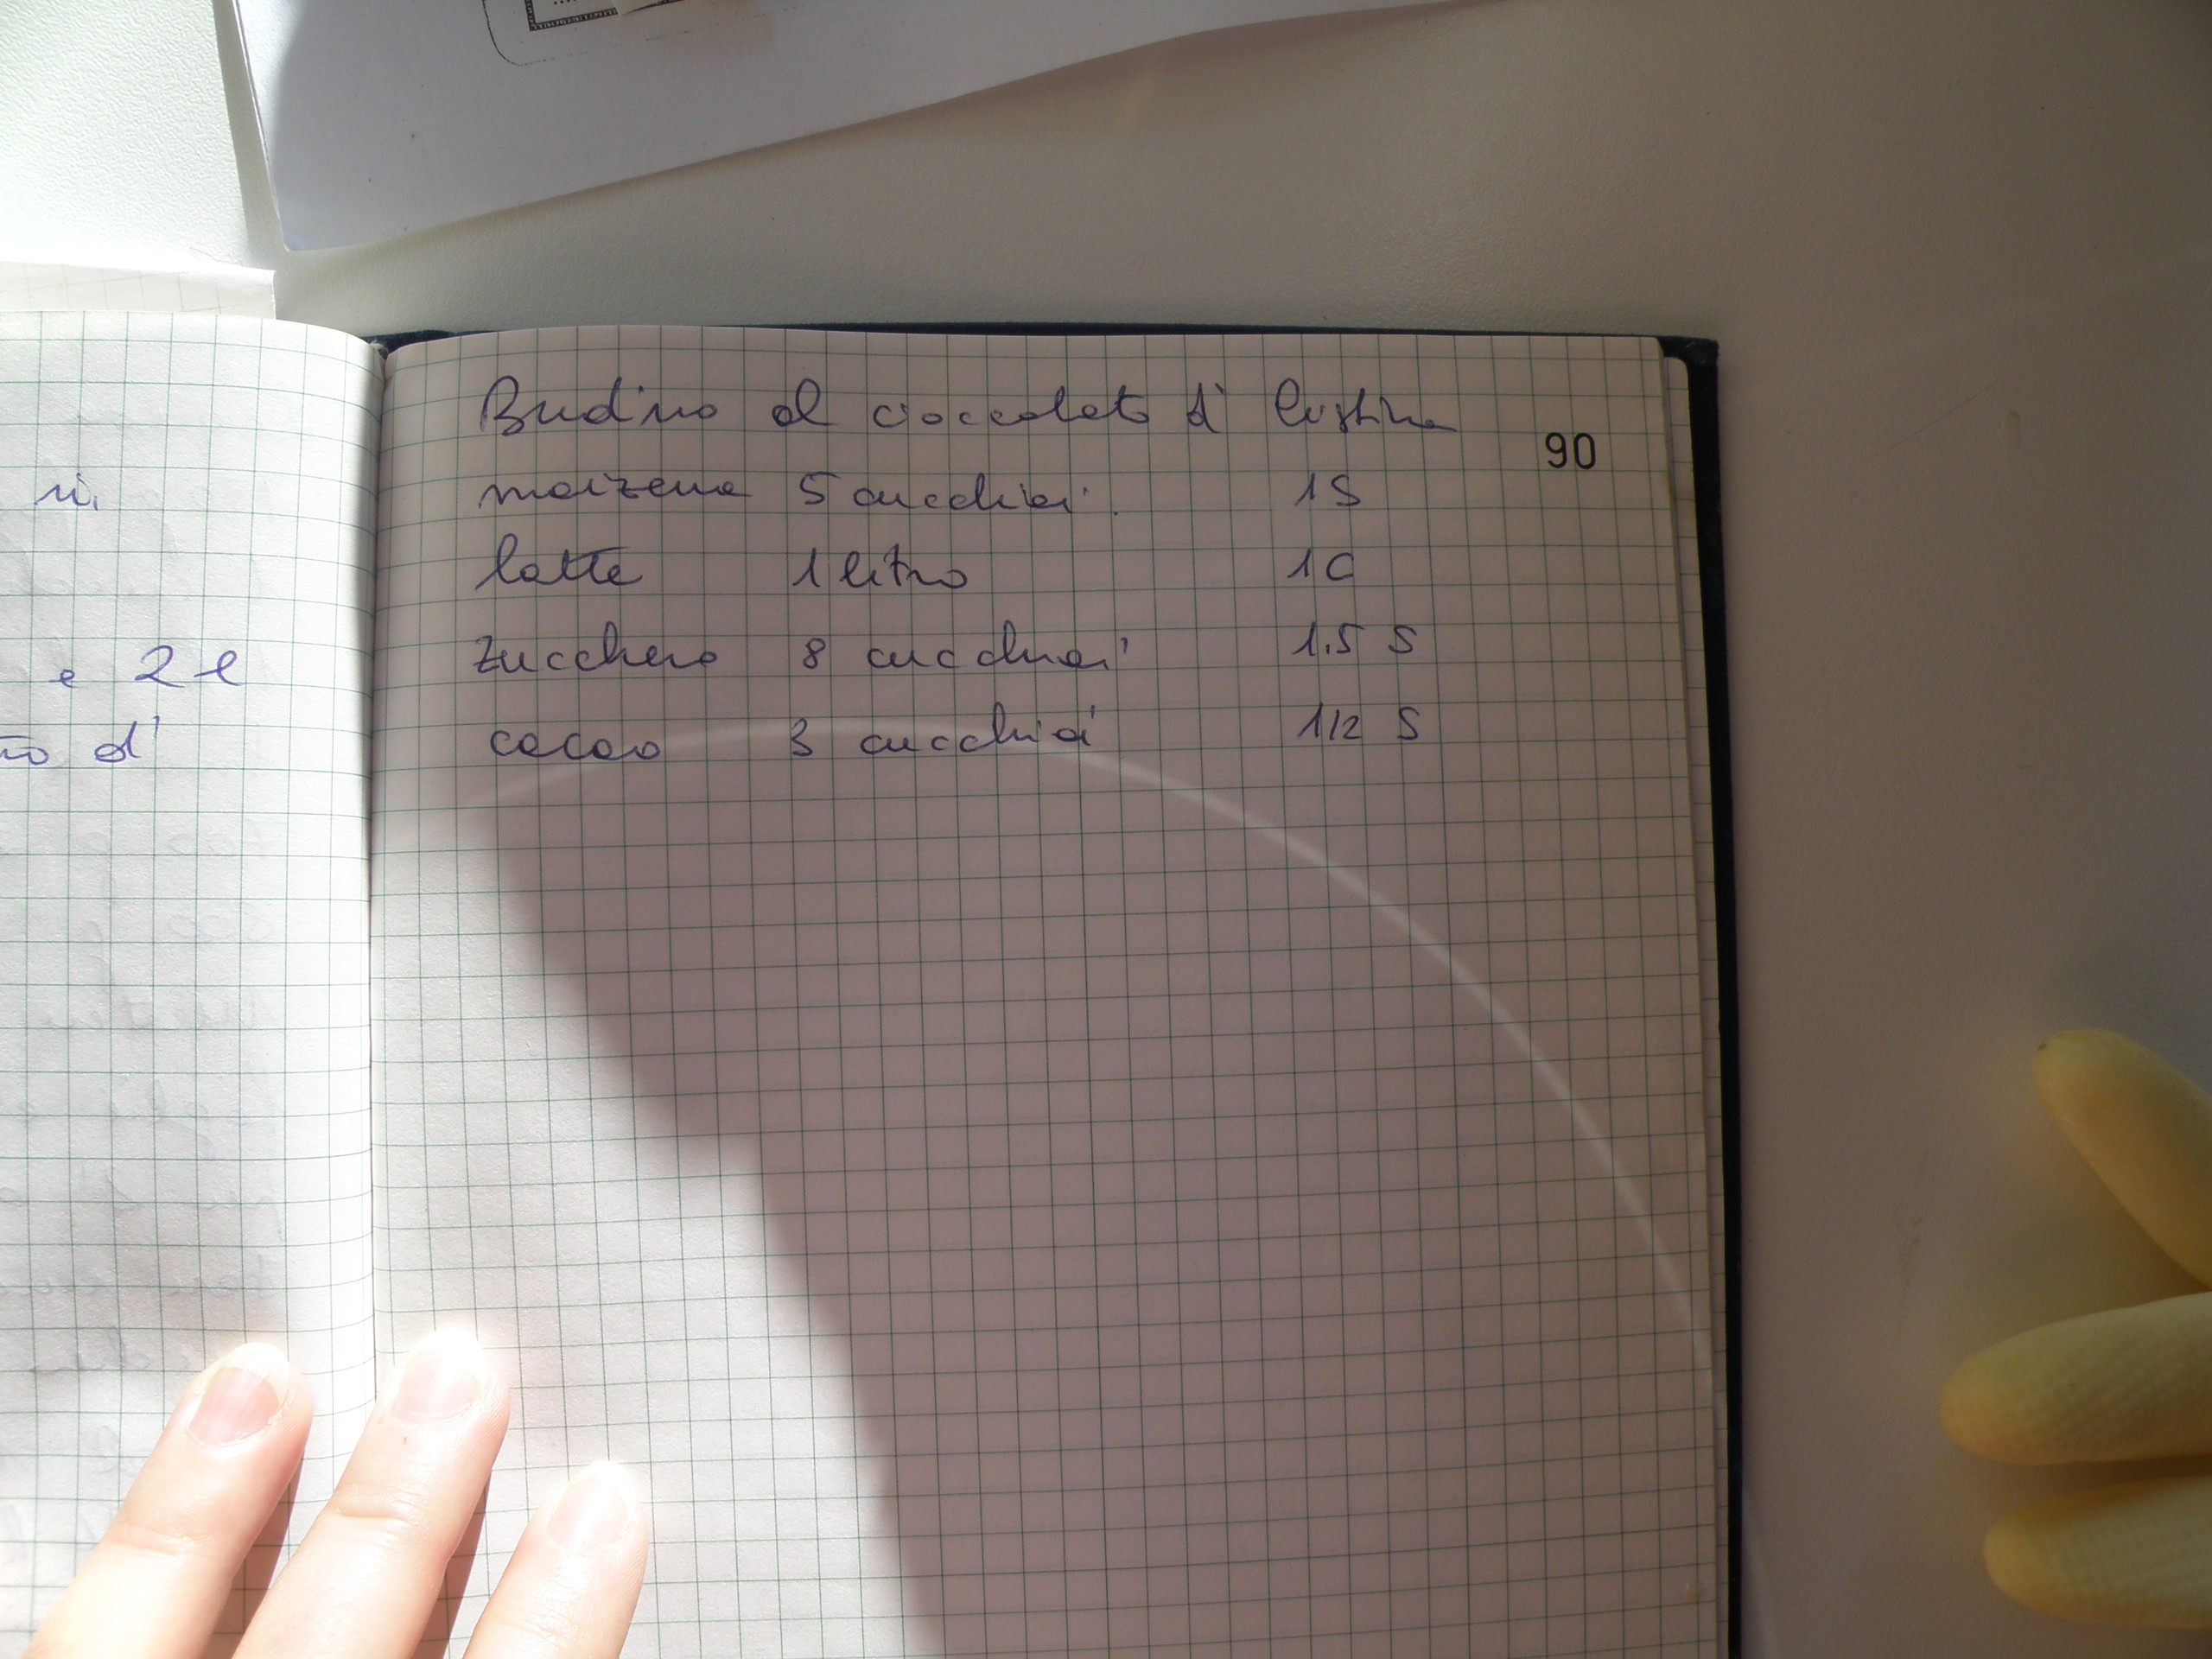 ri.
e 2 l
to d'
Budino al cioccolato di Cristina
90
maizena 5 cucchiai 1S
latte 1 litro 1C
zucchero 8 cucchiai 1.5 S
cacao 3 cucchiai 1/2 S